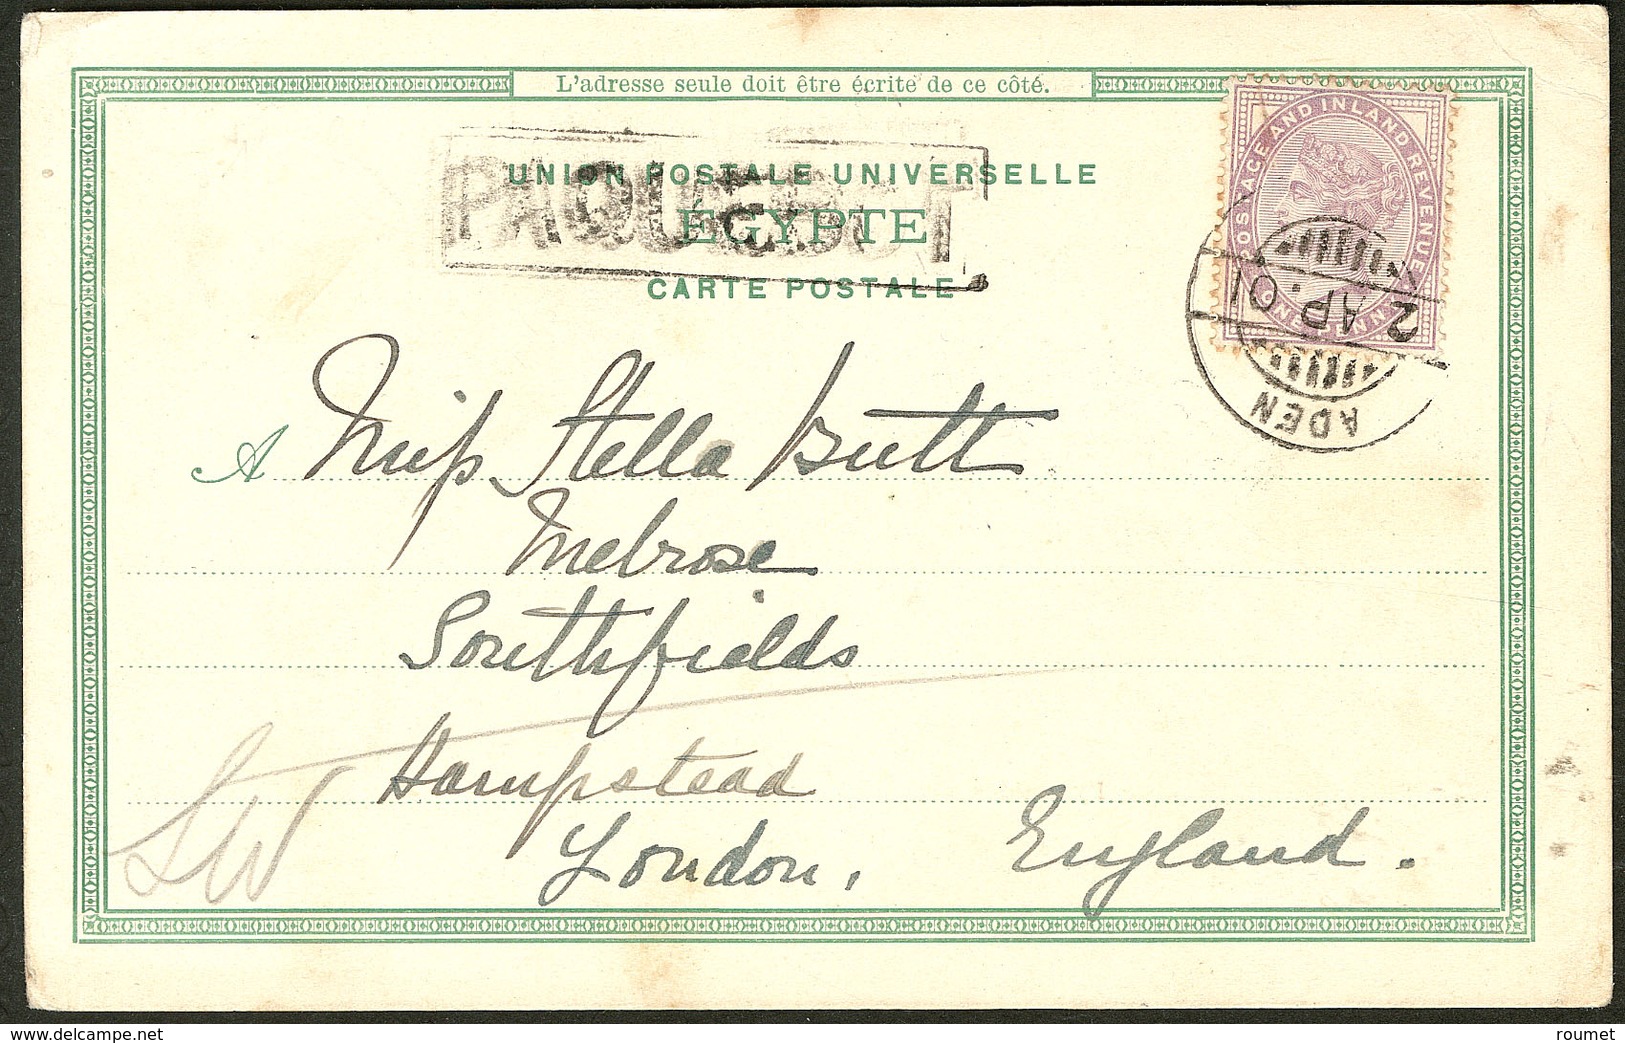 L'adresse seule doit être écrite de ce côté.
UNION POSTALE UNIVERSELLE
ÉGYPTE
CARTE POSTALE
PAQUEBOT
POSTAGE AND INLAND REVENUE
ONE PENNY
2 AP. 01
ADEN
A Miss Stella Butt
Melrose
Southfields
Hampstead
London,
England.
SW
www.delcampe.net
roumet